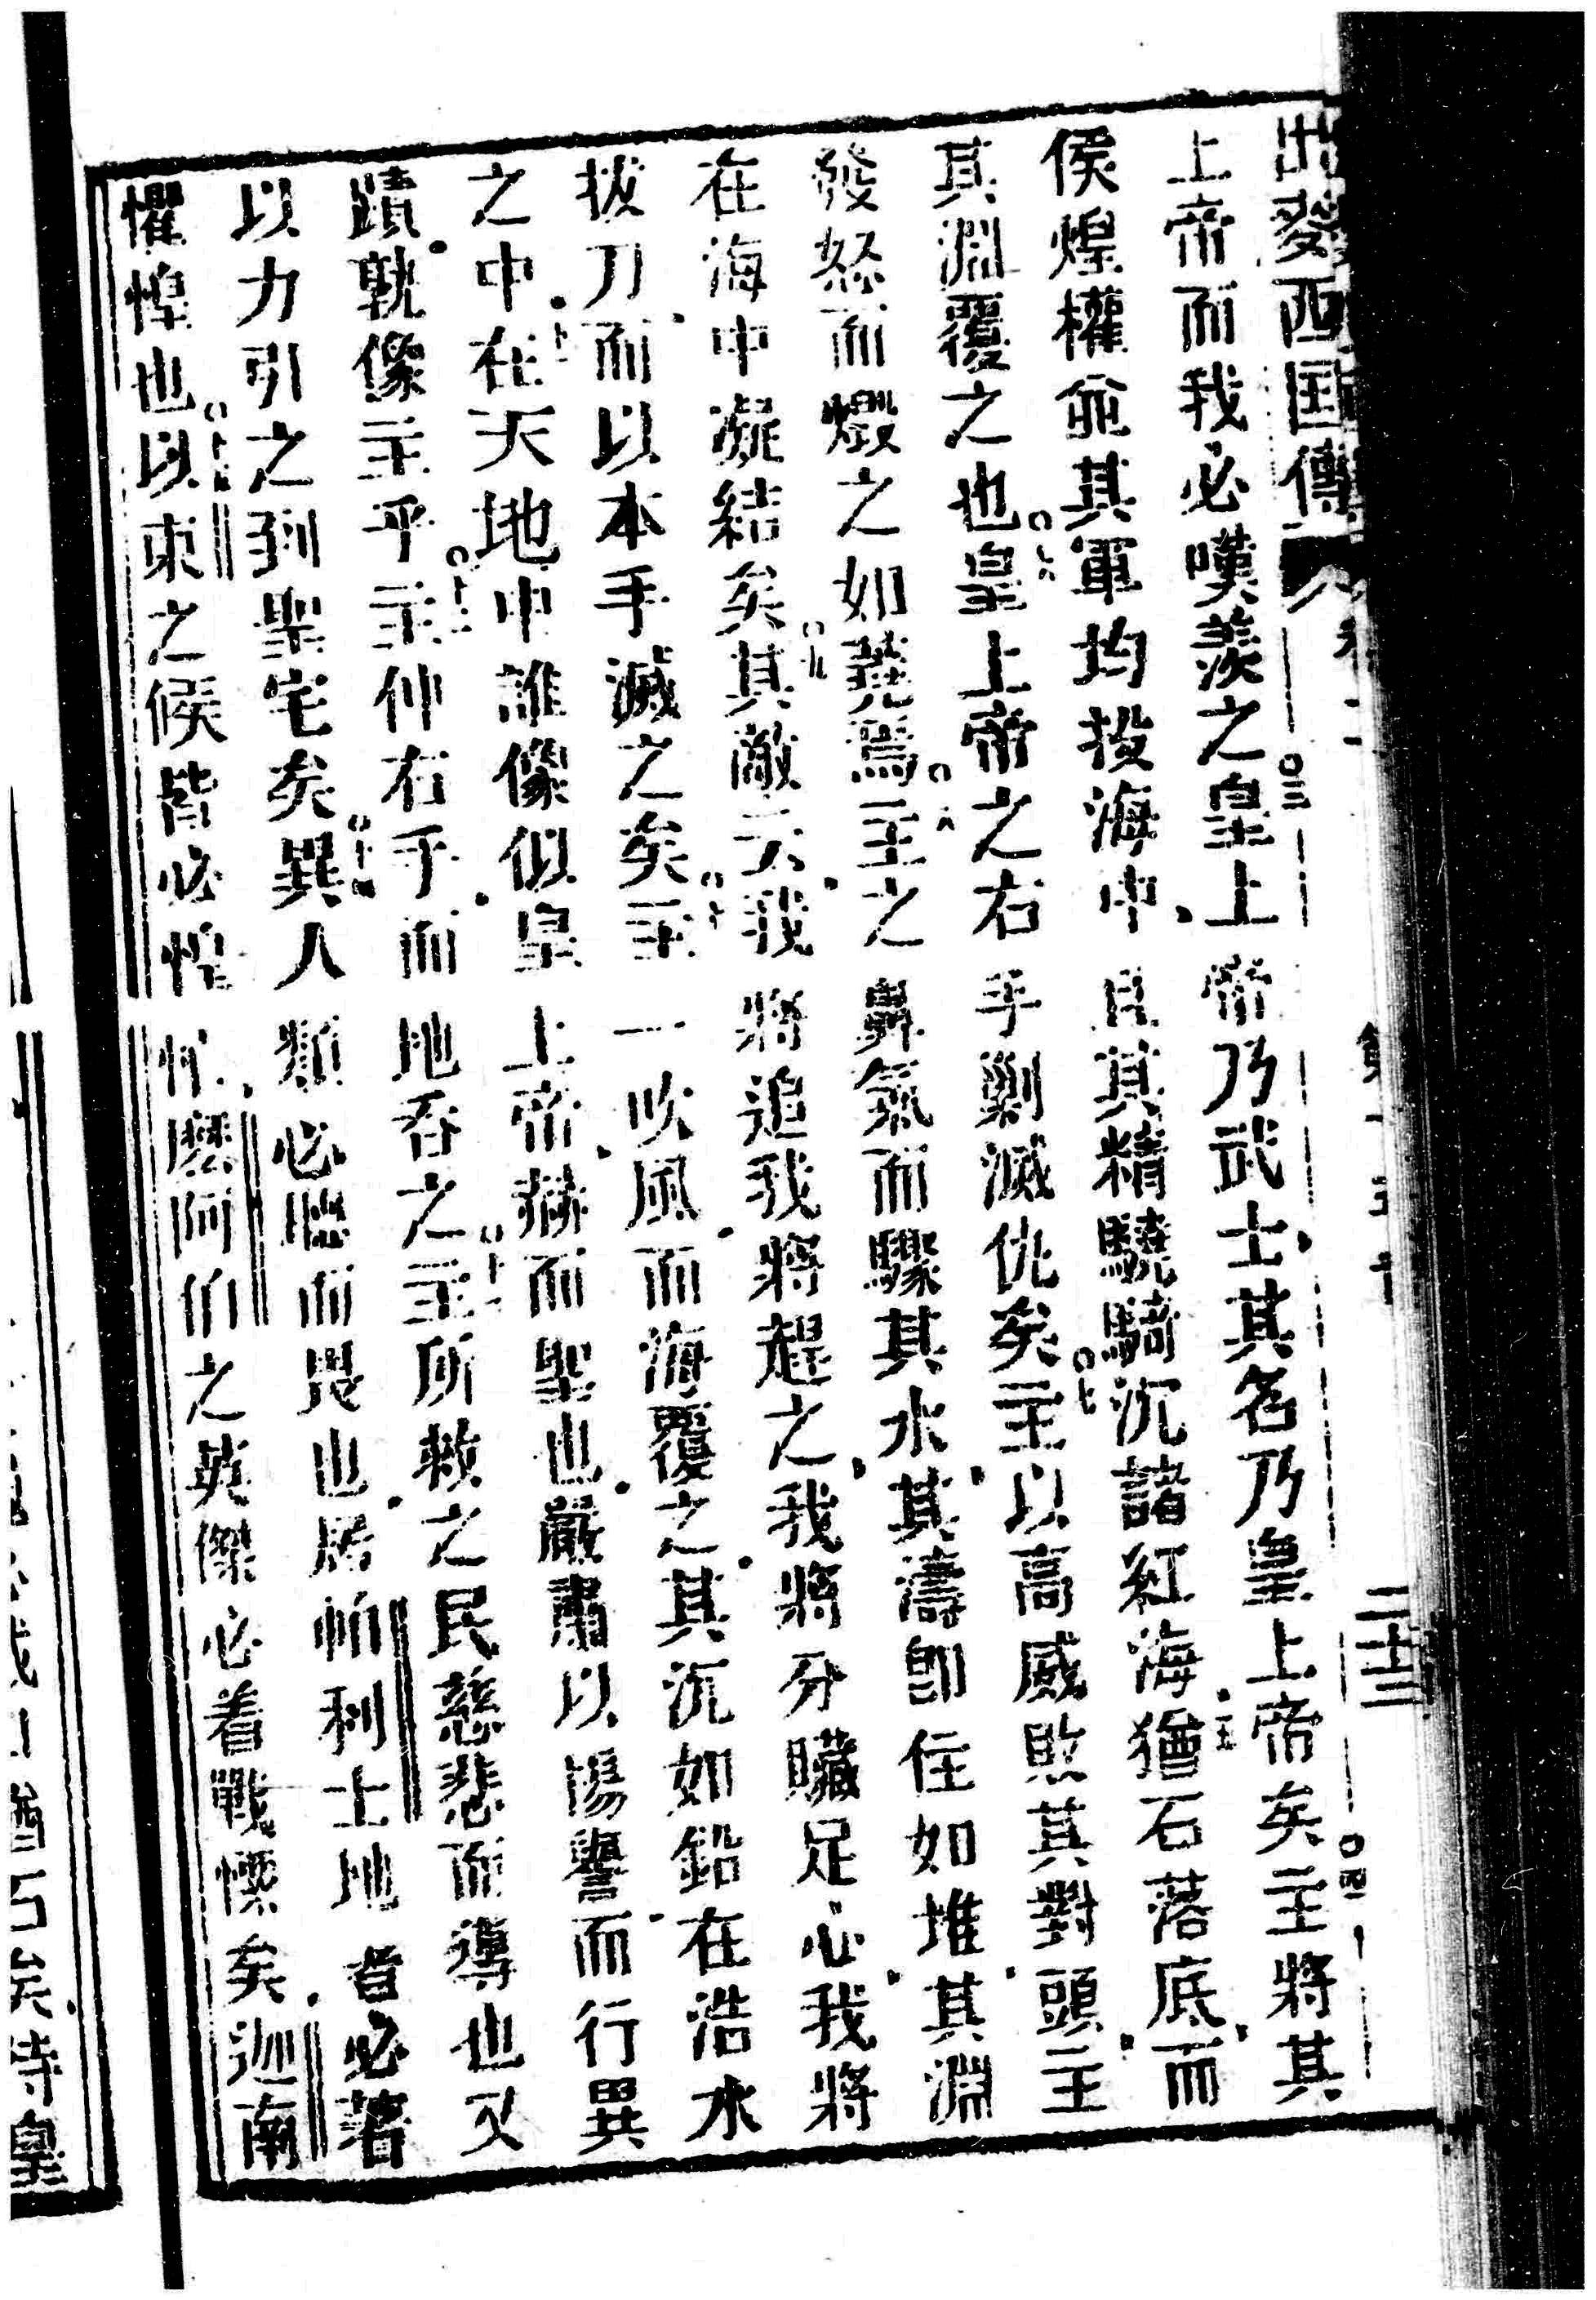 出麥西国傳
卷二
二十三
上帝而我必嘆羨之皇上帝乃武士其名乃皇上帝矣主將其
侯煌權並其軍均投海中且其精驍騎沉諸紅海猶石落底而
其淵覆之也皇上帝之右手剿滅仇矣主以高威敗其對頭主
發怒而燬之如蕘焉主之鼻氣而驟其水其濤卽住如堆其淵
在海中凝結矣其敵云我將追我將趕之我將分贓足心我將
拔刀而以本手滅之矣主一吹風而海覆之其沉如鉛在浩水
之中在天地中誰像似皇上帝赫而聖也嚴肅以揚譽而行異
蹟孰像主乎主伸右手而地吞之主所救之民慈悲而導也又
以力引之到聖宅矣異人類必聽而畏也居帕利士地者必著
懼惶也以東之侯皆必惶忙麽阿伯之英傑必着戰慄矣迦南